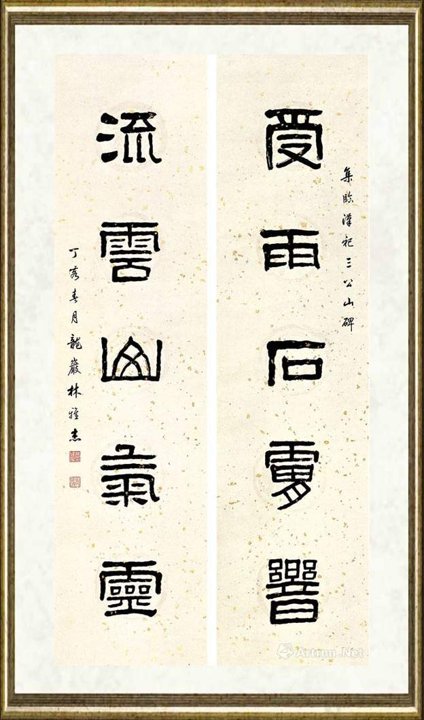 集臨漢祀三公山碑
受雨石膚響
流雲山氣靈
丁亥春月龍巖林杰
Artron.Net